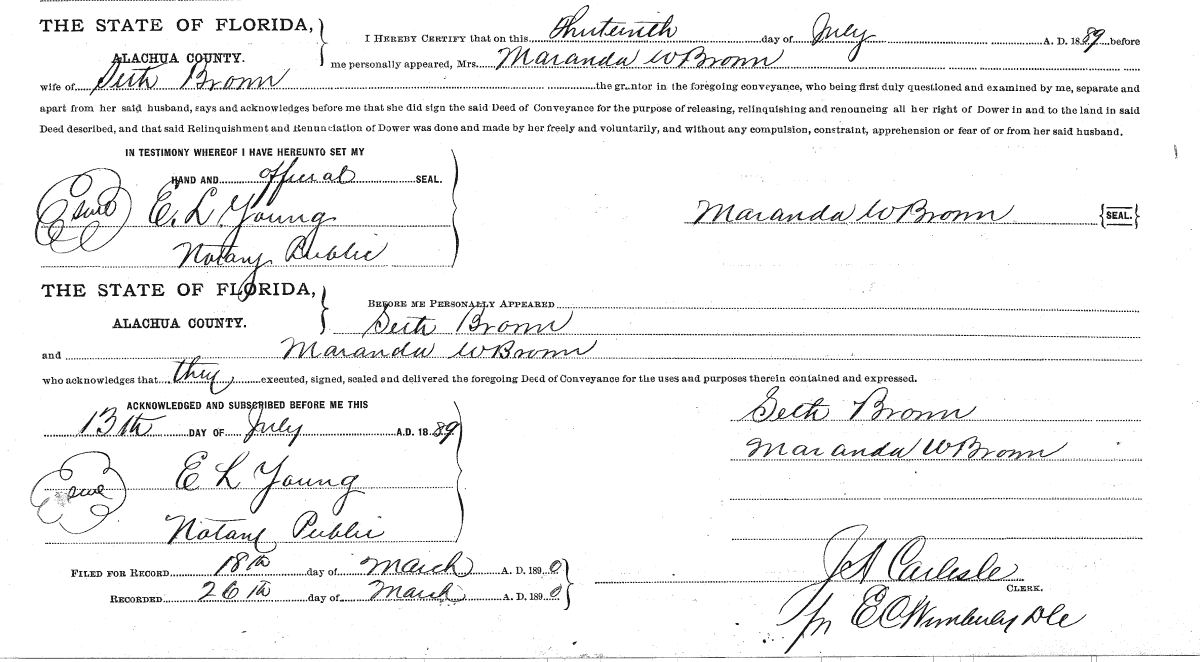 THE STATE OF FLORIDA,
ALACHUA COUNTY.
I HEREBY CERTIFY that on this Thirteenth day of July A. D. 1889 before
me personally appeared, Mrs. Maranda W Brown
wife of Seth Brown the grantor in the foregoing conveyance, who being first duly questioned and examined by me, separate and
apart from her said husband, says and acknowledges before me that she did sign the said Deed of Conveyance for the purpose of releasing, relinquishing and renouncing all her right of Dower in and to the land in said
Deed described, and that said Relinquishment and Renunciation of Dower was done and made by her freely and voluntarily, and without any compulsion, constraint, apprehension or fear of or from her said husband.
IN TESTIMONY WHEREOF I HAVE HEREUNTO SET MY
HAND AND official SEAL.
Seal E. L Young
Maranda W Brown {SEAL.}
Notary Public
THE STATE OF FLORIDA,
ALACHUA COUNTY.
BEFORE ME PERSONALLY APPEARED
Seth Brown
and Maranda W Brown
who acknowledges that they executed, signed, sealed and delivered the foregoing Deed of Conveyance for the uses and purposes therein contained and expressed.
ACKNOWLEDGED AND SUBSCRIBED BEFORE ME THIS
13th DAY OF July A.D. 1889
Seth Brown
Maranda W Brown
Seal E L Young
Notary Public
FILED FOR RECORD 18th day of March A. D. 1890
RECORDED 26th day of March A. D. 1890
J A Carlisle
CLERK.
pr E C Wimberly DC